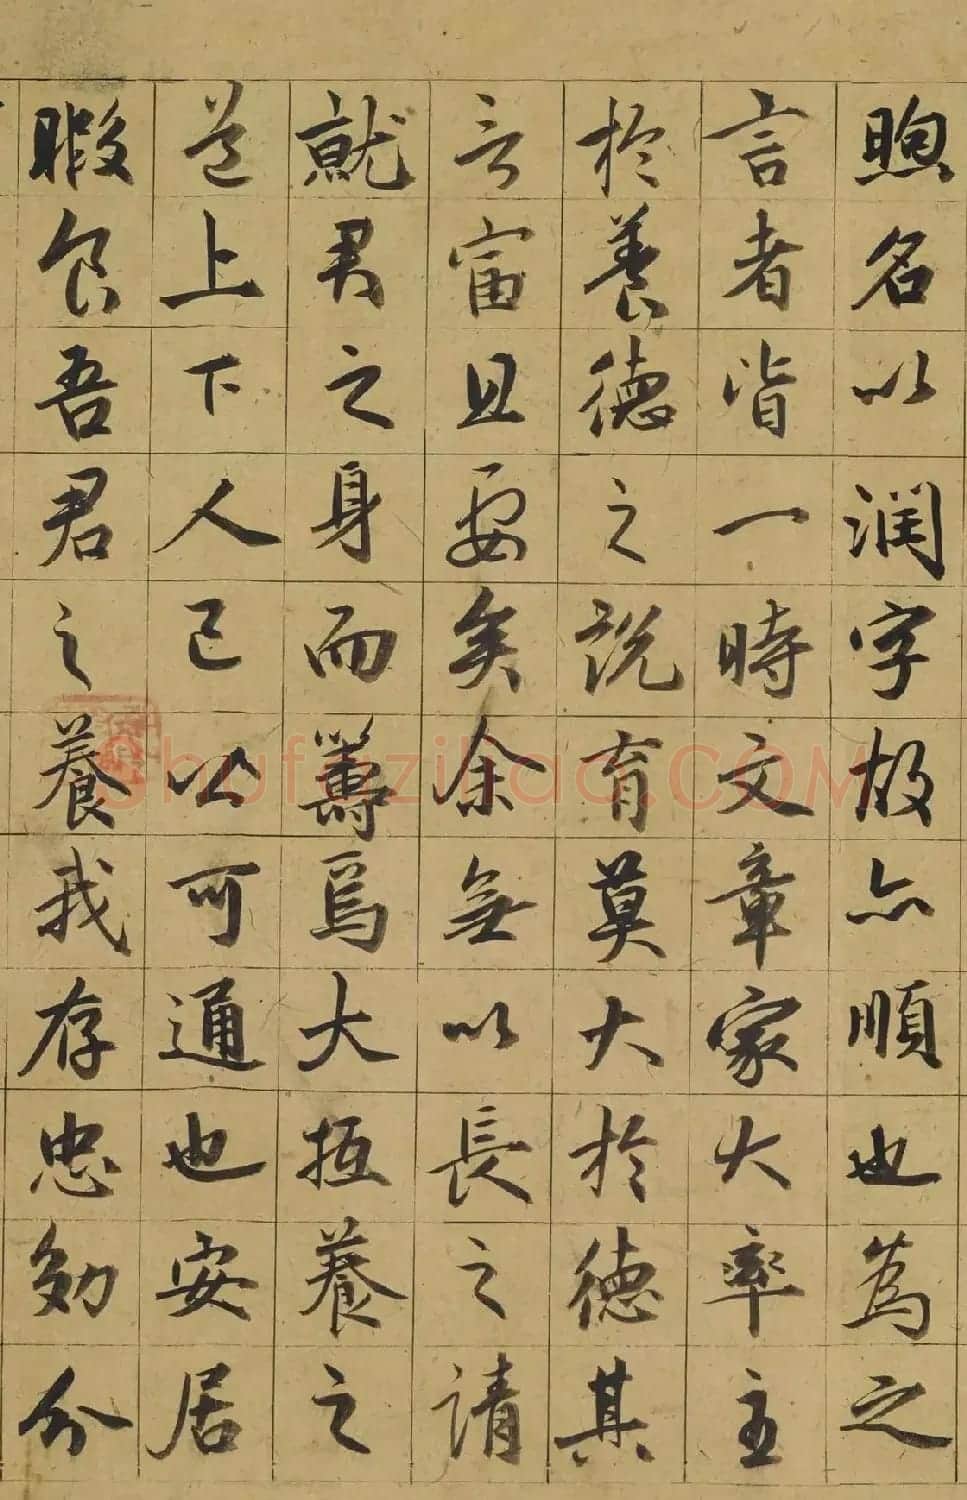 煦名以润字故亦順也為之
言者皆一時文章家大率主
於養德之說育莫大於德其
言富且要矣余無以長之請
就君之身而籌焉大抵養之
道上下人己以可通也安居
暇食吾君之養我存忠効分
shufaziliao.COM